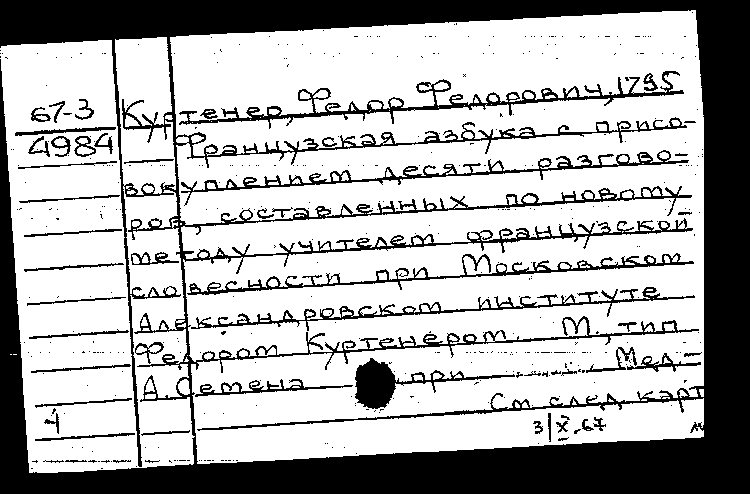 67-3
4984
Куртенер, Федор Федорович, 1795
Французская азбука с присо-
вокуплением десяти разгово-
ров, составленных по новому
методу учителем французской
словесности при Московском
Александровском институте
Федором Куртенером. М., тип
А. Семена при Мед-
См. след. карт
1
3/X.67